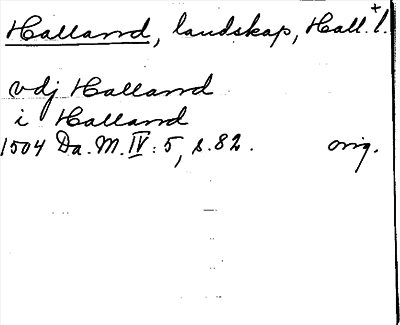 Halland, landskap, Hall. l.+
vdj Halland
i Halland
1504 Da. M. IV: 5, s. 82. orig.